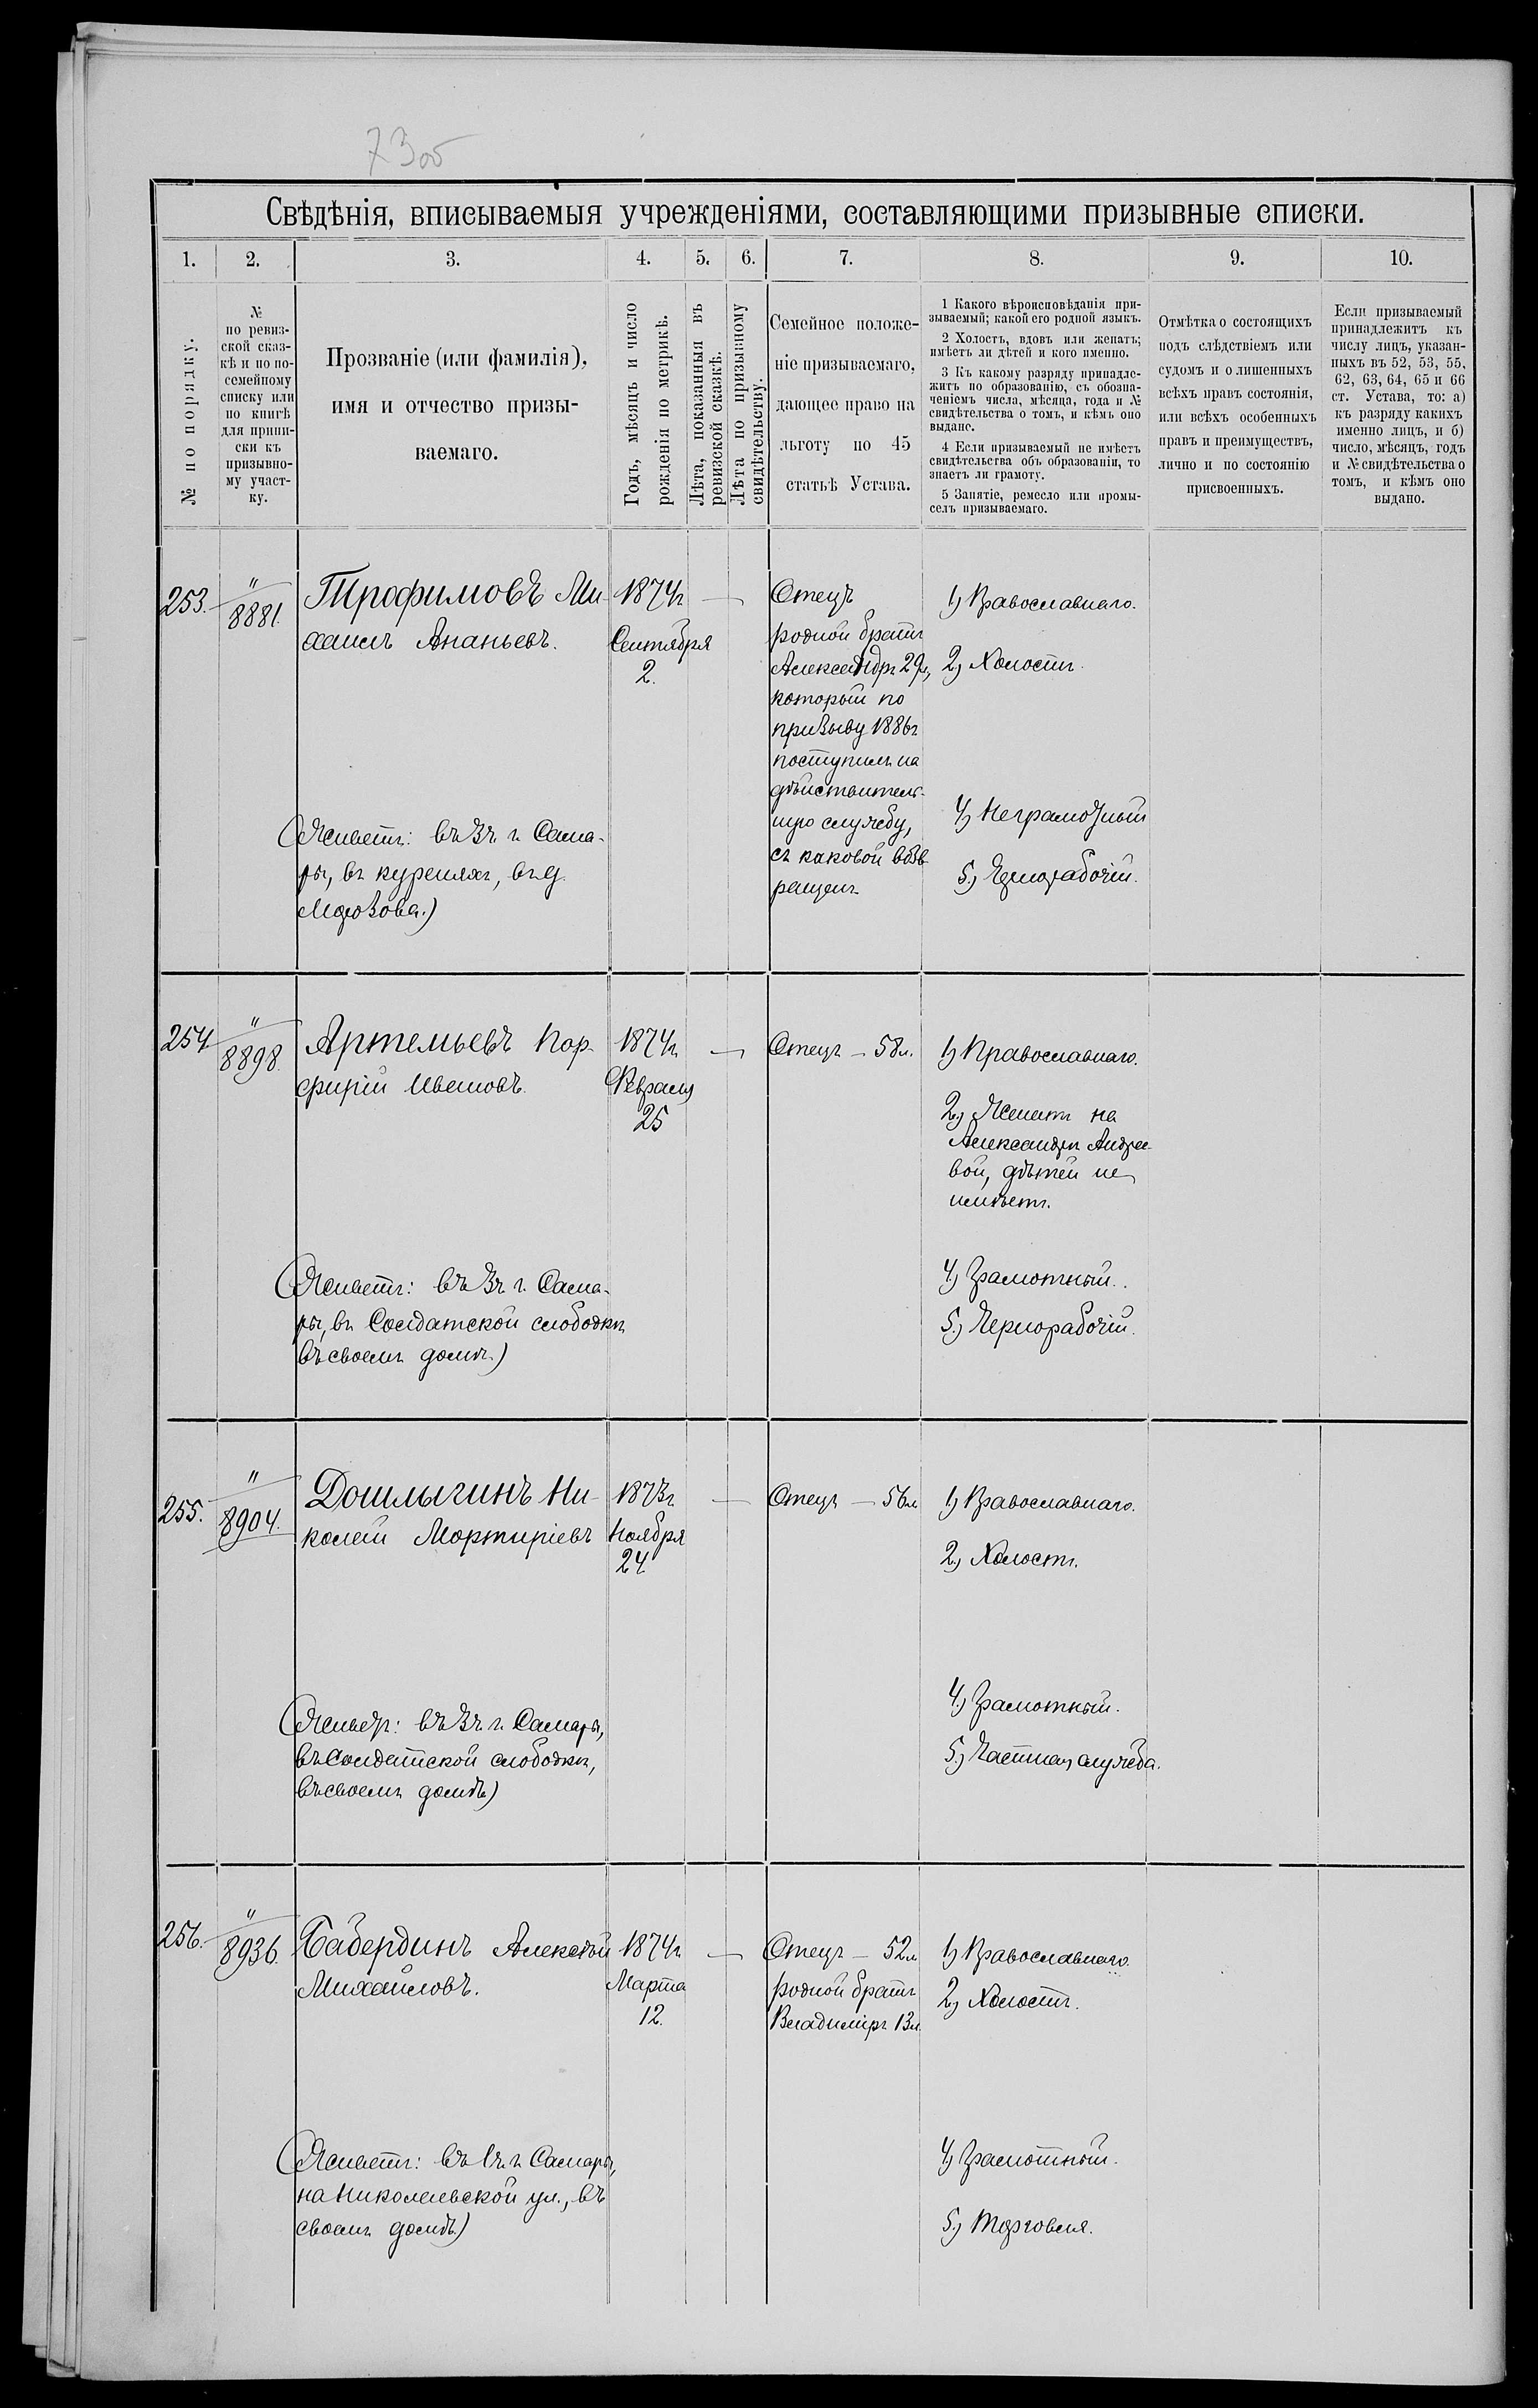 73об
Свѣдѣнія, вписываемыя учрежденіями, составляющими призывные списки.
1. 2. 3. 4. 5. 6. 7. 8. 9. 10.
№ по порядку.
№
по ревиз-
ской сказ-
кѣ и по по-
семейному
списку или
по книгѣ
для припи-
ски къ
призывно-
му участ-
ку.
Прозваніе (или фамилія),
имя и отчество призы-
ваемаго.
Годъ, мѣсяцъ и число
рожденія по метрикѣ.
Лѣта, показанныя въ
ревизской сказкѣ.
Лѣта по призывному
свидѣтельству.
Семейное положе-
ніе призываемаго,
дающее право на
льготу по 45
статьѣ Устава.
1 Какого вѣроисповѣданія при-
зываемый; какой его родной языкъ.
2 Холостъ, вдовъ или женатъ;
имѣетъ ли дѣтей и кого именно.
3 Къ какому разряду принадле-
житъ по образованію, съ обозна-
ченіемъ числа, мѣсяца, года и №
свидѣтельства о томъ, и кѣмъ оно
выдано.
4 Если призываемый не имѣетъ
свидѣтельства объ образованіи, то
знаетъ ли грамоту.
5 Занятіе, ремесло или промы-
селъ призываемаго.
Отмѣтка о состоящихъ
подъ слѣдствіемъ или
судомъ и о лишенныхъ
всѣхъ правъ состоянія,
или всѣхъ особенныхъ
правъ и преимуществъ,
лично и по состоянію
присвоенныхъ.
Если призываемый
принадлежитъ къ
числу лицъ, указан-
ныхъ въ 52, 53, 55,
62, 63, 64, 65 и 66
ст. Устава, то: а)
къ разряду какихъ
именно лицъ, и б)
число, мѣсяцъ, годъ
и № свидѣтельства о
томъ, и кѣмъ оно
выдано.
253.
"
8881.
Трофимовъ Ми-
хаилъ Ананьевъ.
(Живетъ: въ 3ч. г. Сама-
ры, въ куреняхъ, въ д.
Морозова.)
1874г
Сентября
2.
—
Отецъ
родной братъ
Александръ 29л,
который по
призыву 1886г
поступилъ на
дѣйствитель-
ную службу,
съ каковой возв-
ращенъ
1) Православнаго.
2) Холостъ.
4) Неграмотный
5.) Чернорабочій.
254
"
8898.
Артемьевъ Пор-
фирій Ивановъ.
(Живетъ: въ 3ч. г. Сама-
ры, въ Солдатской слободкѣ
въ своемъ домѣ.)
1874г.
Февраля
25
—
Отецъ — 58л.
1) Православнаго.
2) Женатъ на
Александрѣ Андрее-
вой, дѣтей не
имѣетъ.
4.) Грамотный.
5.) Чернорабочій.
255.
"
8904.
Дошлыгинъ Ни-
колай Мортиріевъ
(Живетъ: въ 3ч. г. Самары,
въ Солдатской слободкѣ,
въ своемъ домѣ)
1873г
Ноября
24
—
Отецъ — 56л
1) Православнаго.
2.) Холостъ.
4.) Грамотный.
5.) Частная служба.
256.
"
8936.
Хабердинъ Алексѣй
Михайловъ.
(Живетъ: въ 1ч. г. Самары,
на Николаевской ул., въ
своемъ домѣ.)
1874г
Марта
12.
—
Отецъ — 52л
родной братъ
Владиміръ 13л.
1) Православнаго.
2) Холостъ.
4) Грамотный.
5.) Торговля.